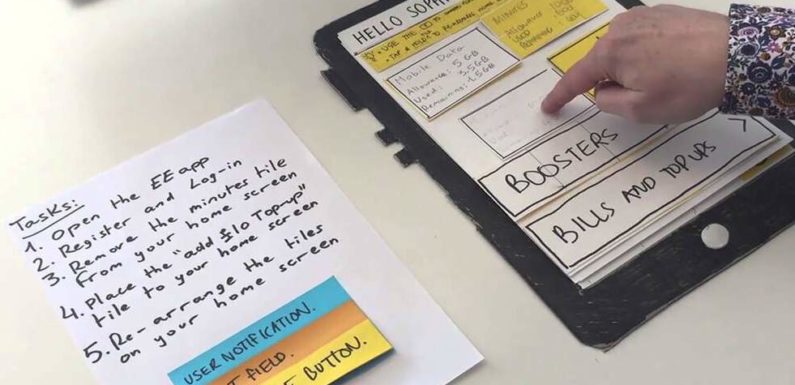 Tasks:
1. Open the EE app
2. Register and Log-in
3. Remove the minutes tile
from your home screen
4. Place the "add £10 Top-up"
tile to your home screen
5. Re-arrange the tiles
on your home screen
USER NOTIFICATION.
FIELD.
BUTTON.
HELLO
Mobile Data
Allowance: 5GB
Used: 3,5GB
Remaining: 1,5GB
Minutes
Allowance
Used
Remaining
BOOSTERS
BILLS AND TOP UPS